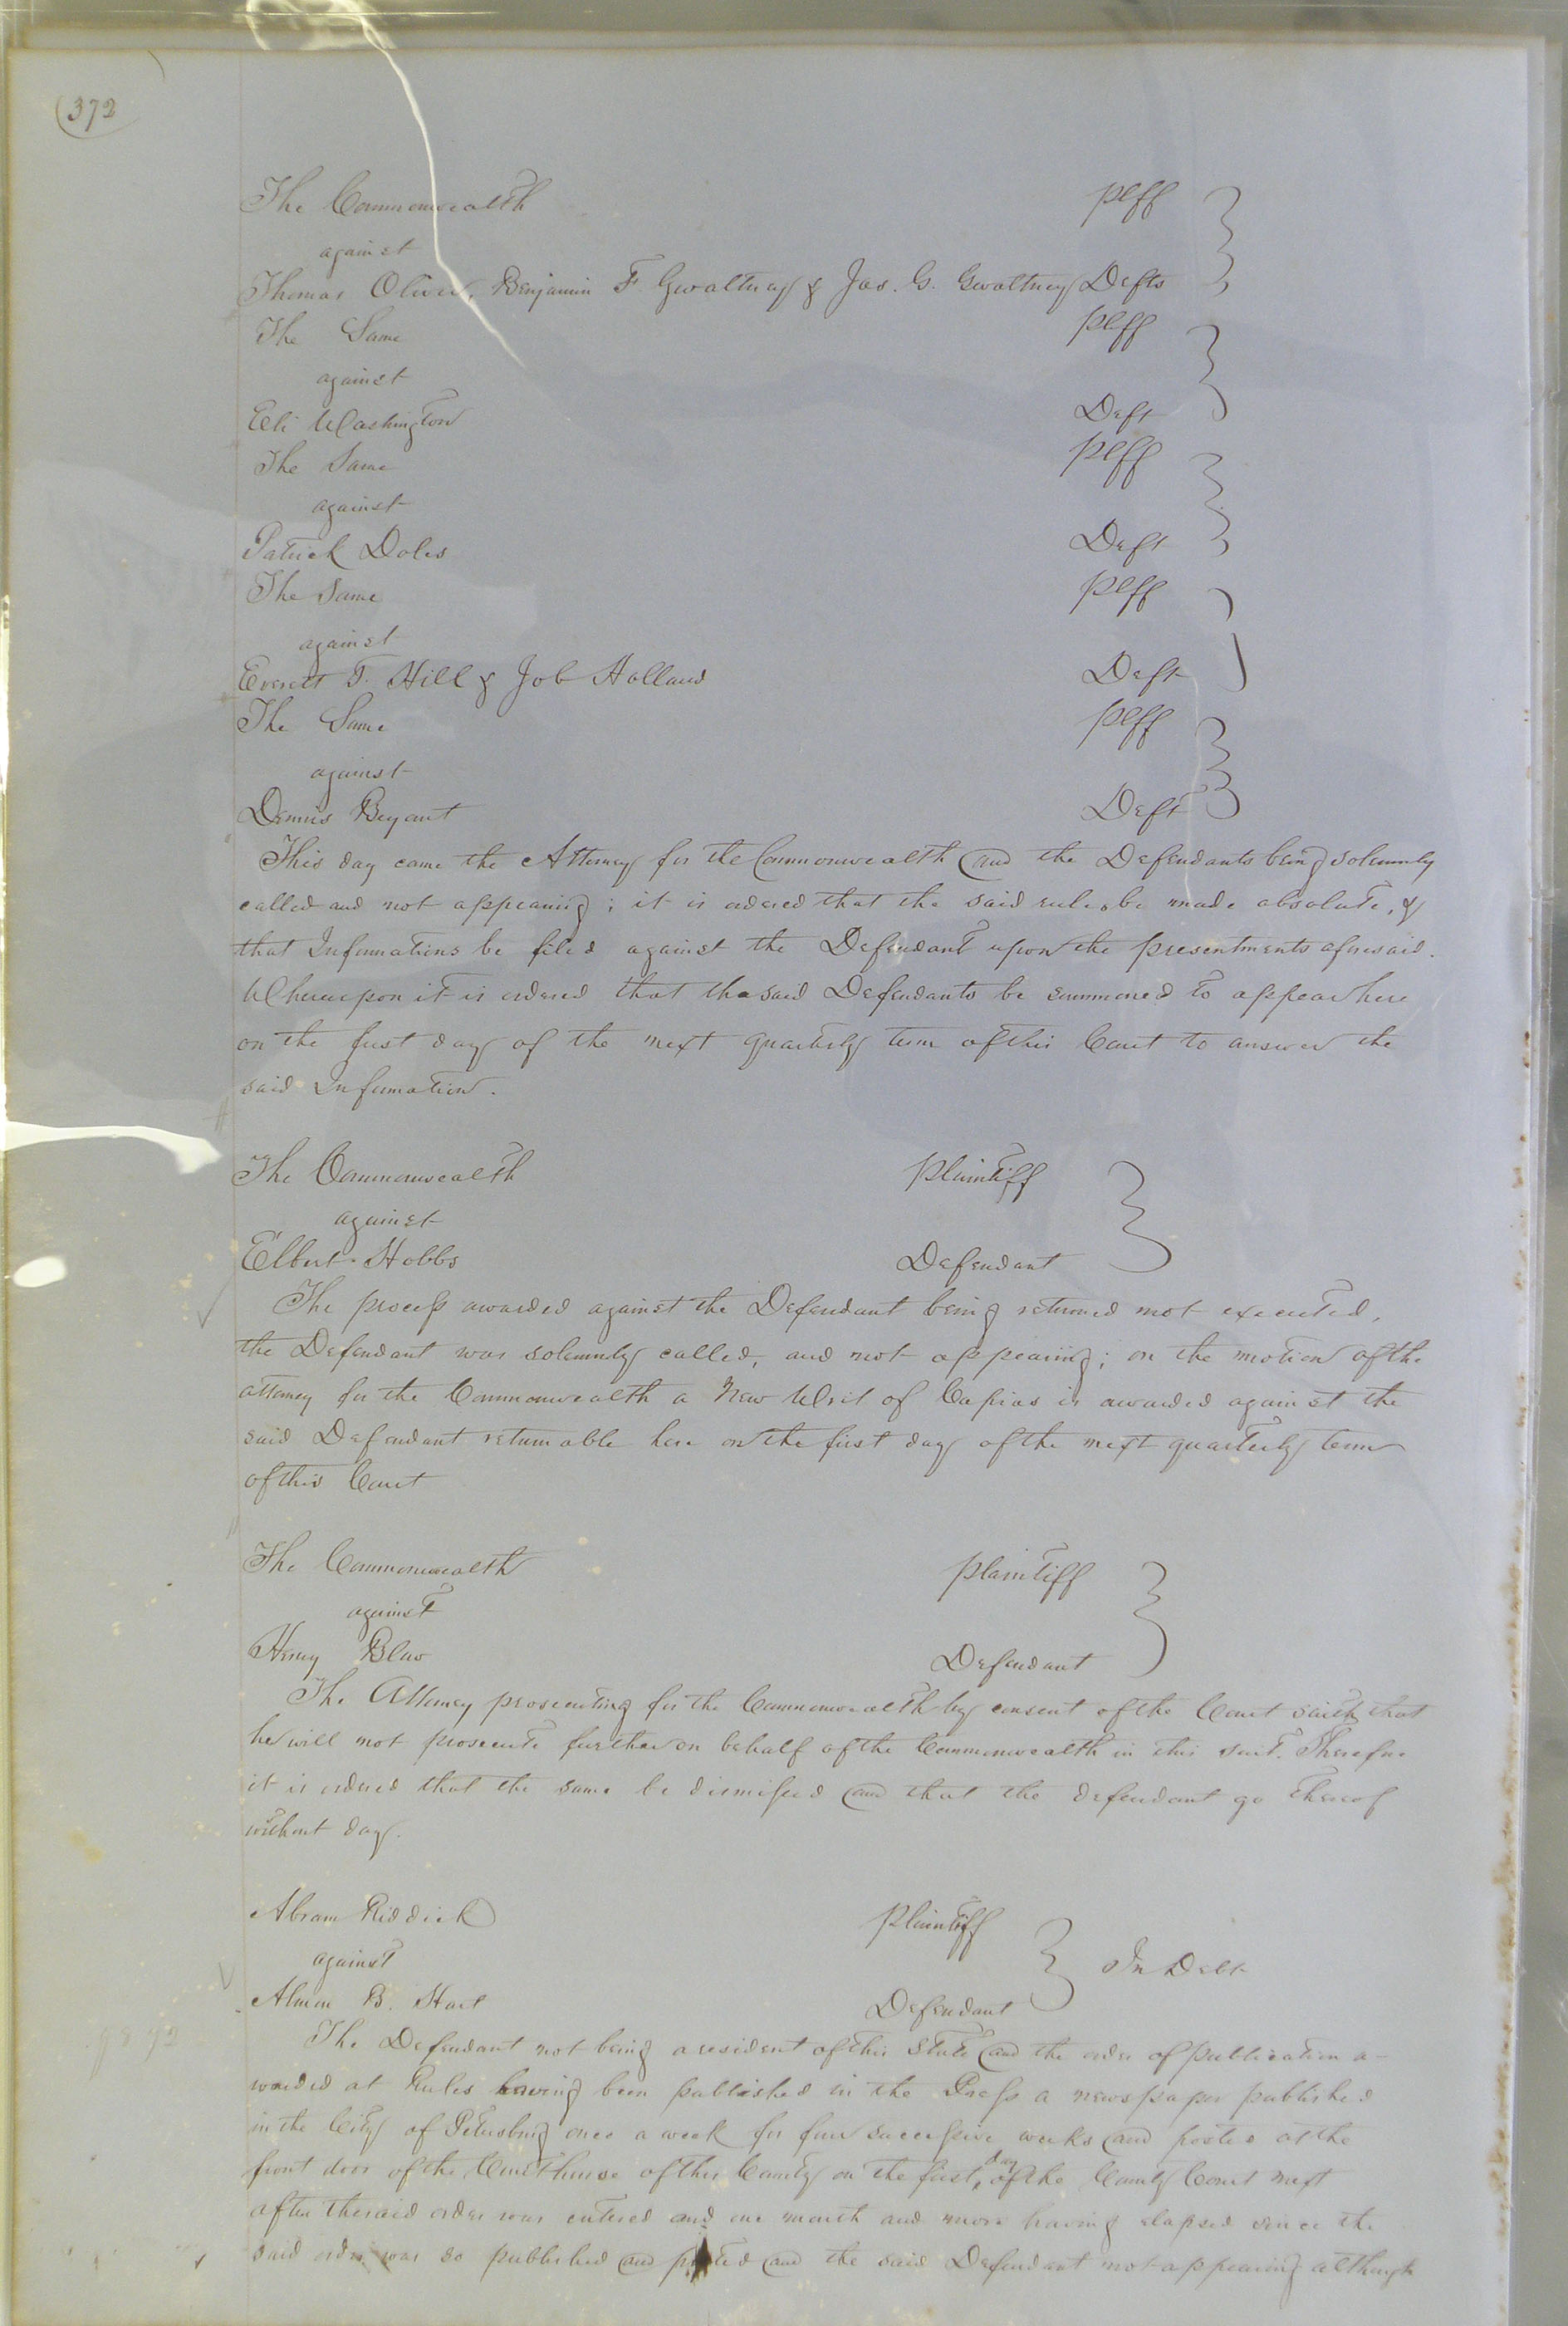 372
The Commonwealth Plff
against
Thomas Oliver, Benjamin F. Gwaltney & Jas. G. Gwaltney Defts
The Same Plff
against
Eli Washington Deft
The Same Plff
against
Patrick Doles Deft
The Same Plff
against
Everett T. Hill & Job Holland Deft
The Same Plff
against
Dennis Bryant Deft
This day came the Attorney for the Commonwealth and the Defendants being solemnly
called and not appearing; it is ordered that the said rules be made absolute, &
that Informations be filed against the Defendant upon the presentments aforesaid.
Whereupon it is ordered that the said Defendants be summoned to appear here
on the first day of the next quarterly term of this Court to answer the
said Information.
The Commonwealth Plaintiff
against
Elbert Hobbs Defendant
The process awarded against the Defendant being returned not executed,
the Defendant was solemnly called, and not appearing; on the motion of the
attorney for the Commonwealth a New Writ of Capias is awarded against the
said Defendant returnable here on the first day of the next quarterly term
of this Court
The Commonwealth Plaintiff
against
Henry Blow Defendant
The Attorney prosecuting for the Commonwealth by consent of the Court saith that
he will not prosecute further on behalf of the Commonwealth in this suit. Therefore
it is ordered that the same be dismissed and that the defendant go thereof
without day.
Abram Riddick Plaintiff
against In Debt
B. Hart Defendant
The Defendant not being a resident of this State and the order of publication a-
warded at Rules having been published in the Press a newspaper published
in the City of Petersburg once a week for four successive weeks and posted at the
front door of the Courthouse of this County on the first day of the County Court next
after the said order was entered and one month and more having elapsed since the
said order was so published and posted and the said Defendant not appearing although